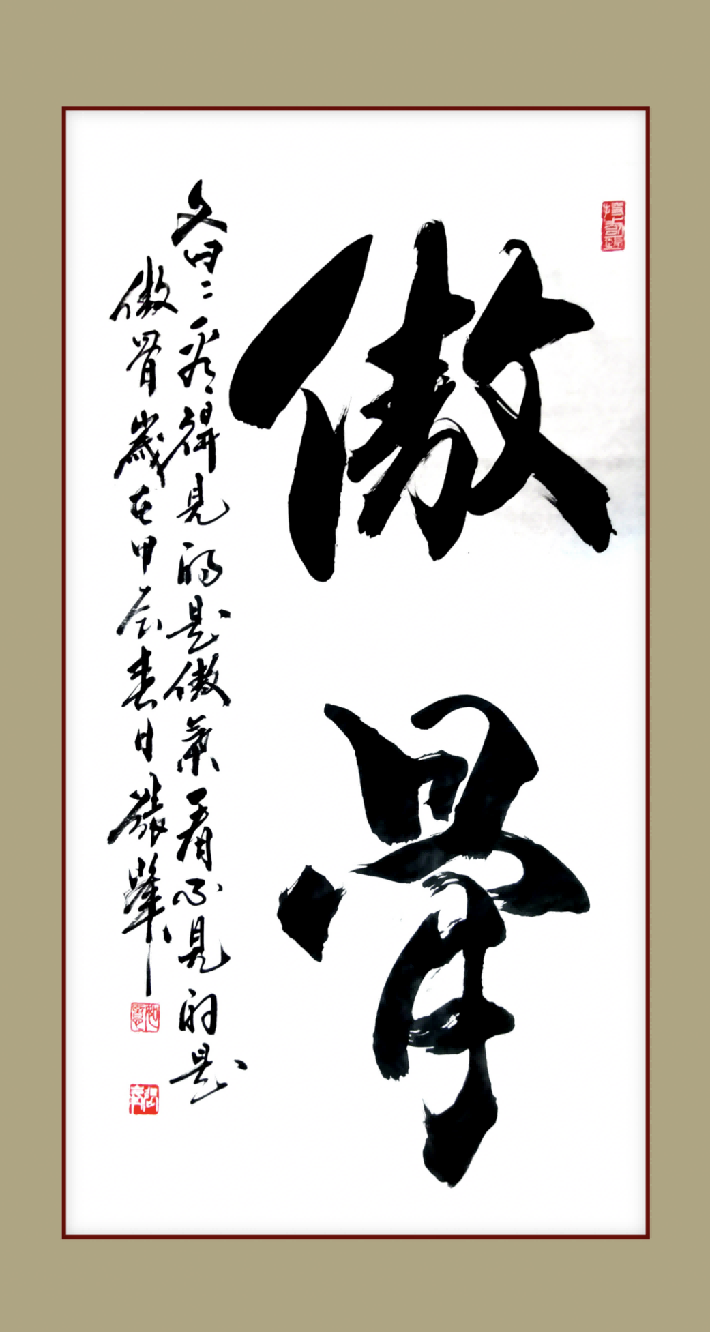 傲骨
文曰二看得见的是傲氣看不見的是
傲骨歲在甲辰春日張